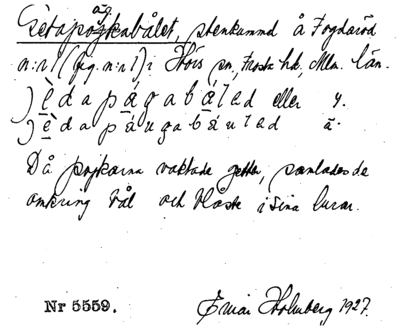 ag
Getapojkabålet, stenkummel å Fogdaröd
n:r 1 (fig. n:r 1) i Hörs sn, Frosta hd, Mlm. län.
jèdapágabåled eller y.
jèdapáugabáuled ä.
Då pojkarna vaktade getter, samlades de
omkring bål och blåste i sina lurar.
Nr 5559. Einar Holmberg 1927.